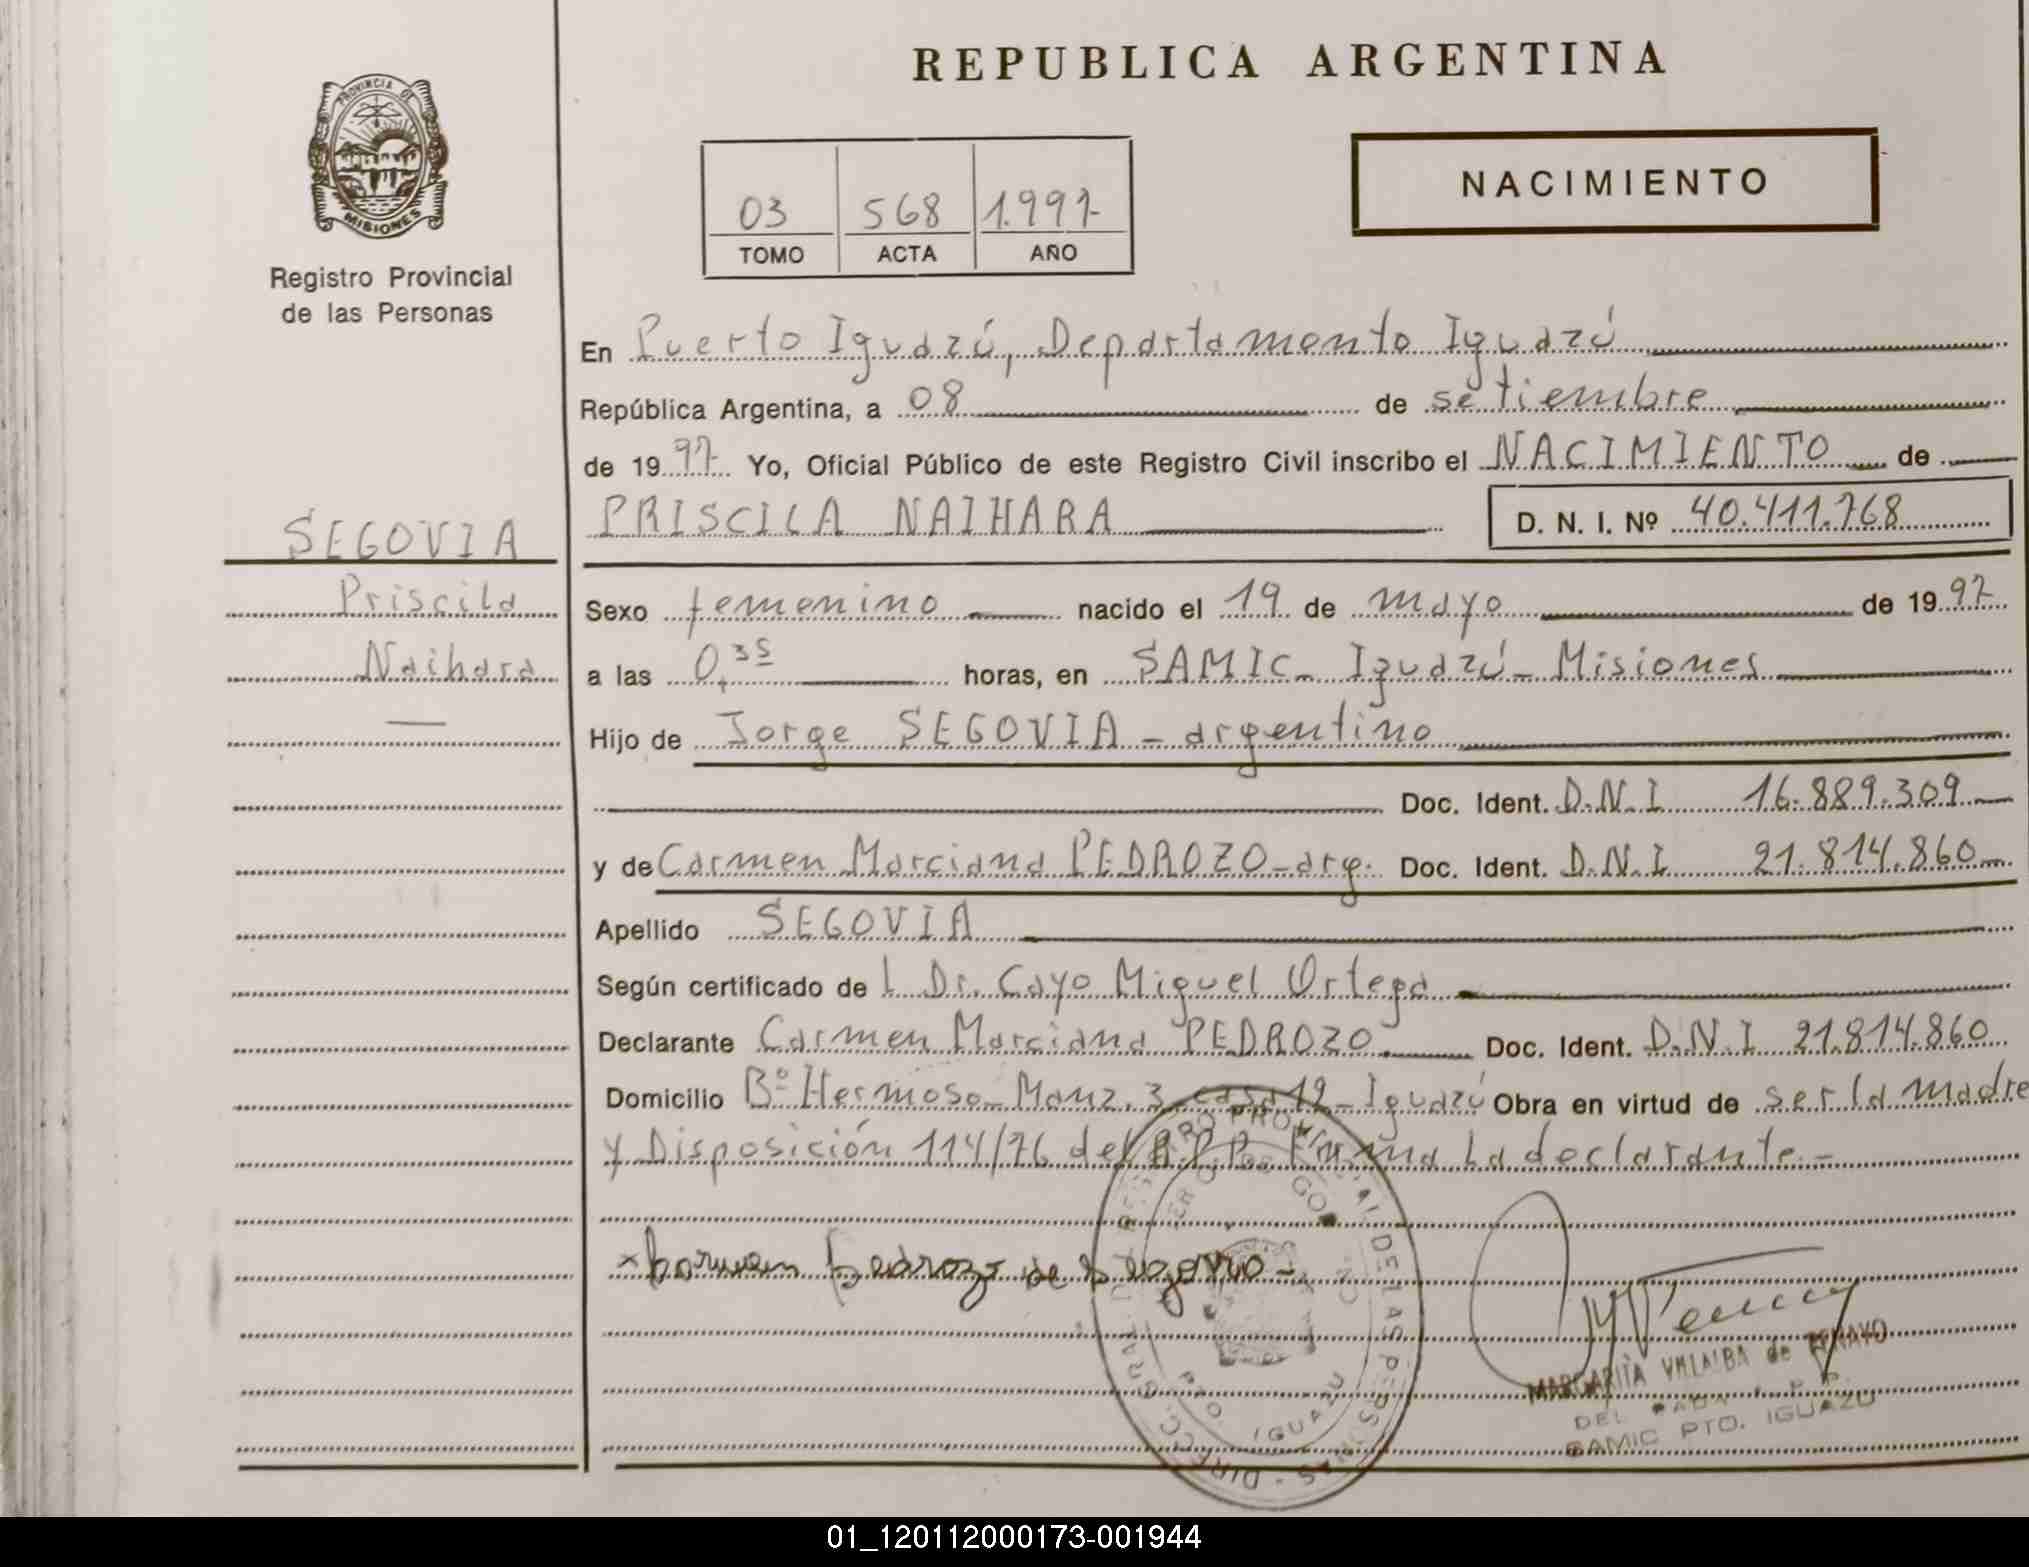 REPUBLICA ARGENTINA
PROVINCIA DE
MISIONES
Registro Provincial
de las Personas
03 568 1.997-
TOMO ACTA AÑO
NACIMIENTO
En Puerto Iguazú, Departamento Iguazú
República Argentina, a 08 de setiembre
de 1997- Yo, Oficial Público de este Registro Civil inscribo el NACIMIENTO de
PRISCILA NAIHARA D. N. I. Nº 40.411.768
SEGOVIA
Priscila
Naihara
Sexo femenino nacido el 19 de mayo de 1997
a las 0,35 horas, en SAMIC- Iguazú- Misiones
Hijo de Jorge SEGOVIA - argentino
Doc. Ident. D.N.I 16.889.309
y de Carmen Marciana PEDROZO-arg. Doc. Ident. D.N.I 21.814.860
Apellido SEGOVIA
Según certificado de l Dr. Cayo Miguel Ortega
Declarante Carmen Marciana PEDROZO. Doc. Ident. D.N.I 21.814.860
Domicilio Bº Hermoso- Manz. 3 casa 19- Iguazú Obra en virtud de ser la madre
y Disposición 114/76 del R.P.P. Firma La declarante.-
x Carmen Pedrozo de Segovia-
PTO. IGUAZU
MARGARITA VILLALBA de
SAMIC PTO. IGUAZU
01_120112000173-001944